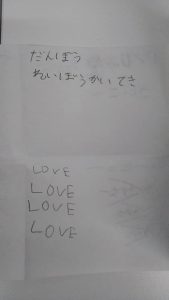 だんぼう
れいぼうかいてき
LOVE
LOVE
LOVE
LOVE